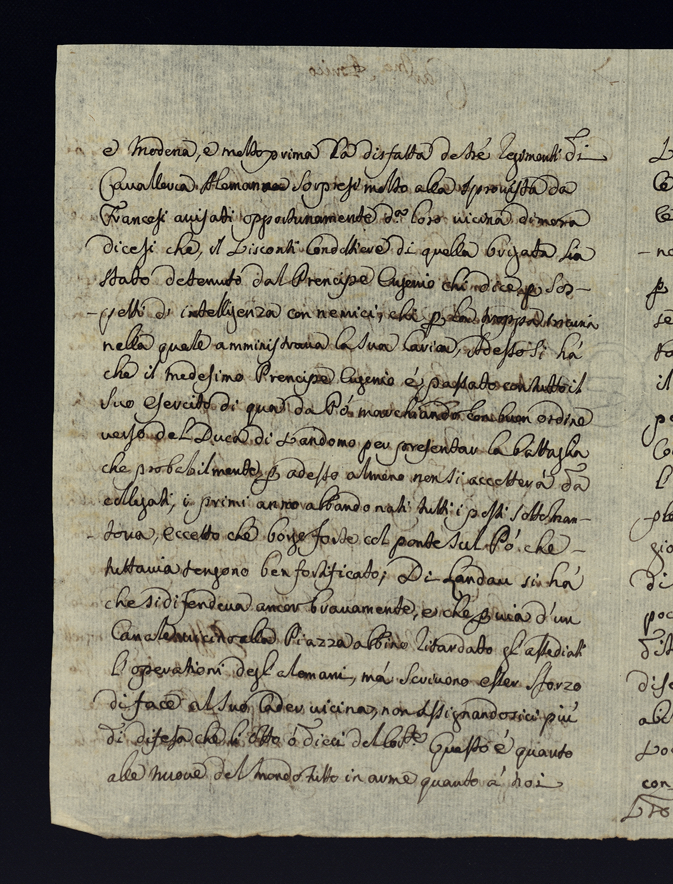 e Modena, e molto prima la disfatta de tré Regimenti di
Cavalleria Alamanna sorpresi molto alla sprovista da
Francesi avisati opportunamente d.ª loro vicina dimora
dicesi che, il Visconti Condottiere di quella brigata sia
stato detenuto dal Prencipe Eugenio chi dice p sos-
petti di intelligenza con nemici, chi p la troppa
nella quale amministrava la sua carica, Adesso si há
che il medesimo Prencipe Eugenio é passato con tutto il
suo esercito di quá da Pó marchiando con buon ordine
verso del Duca di Vandomo per presentar la battaglia
che probabilmente p adesso almeno non si accetterá da
collegati, i primi anno abbandonati tutti i posti sotto Man-
tova, eccetto che borgo forte col ponte sul Pó che
tuttavia tengono ben fortificato; Di Landau si há
che si difendeva ancor bravamente, e che p via d'un
Canale vicino alla Piazza abbino ritardato gl' assediati
l'operationi degl' alemani, má scrivono esser sforzo
di face al suo cader vicina, non assignandosici piú
di difesa che li otto ó dieci del cor.te Questo é quanto
alle nuove del mondo tutto in arme quanto á noi